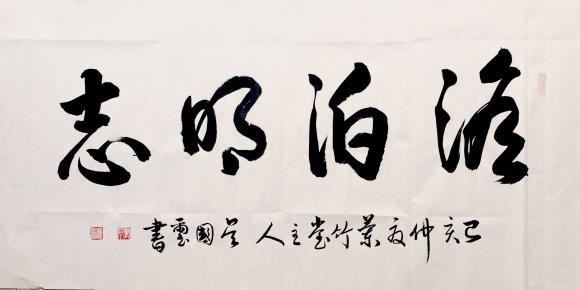 澹泊明志
己亥仲夏竹堂主人吴國雲書